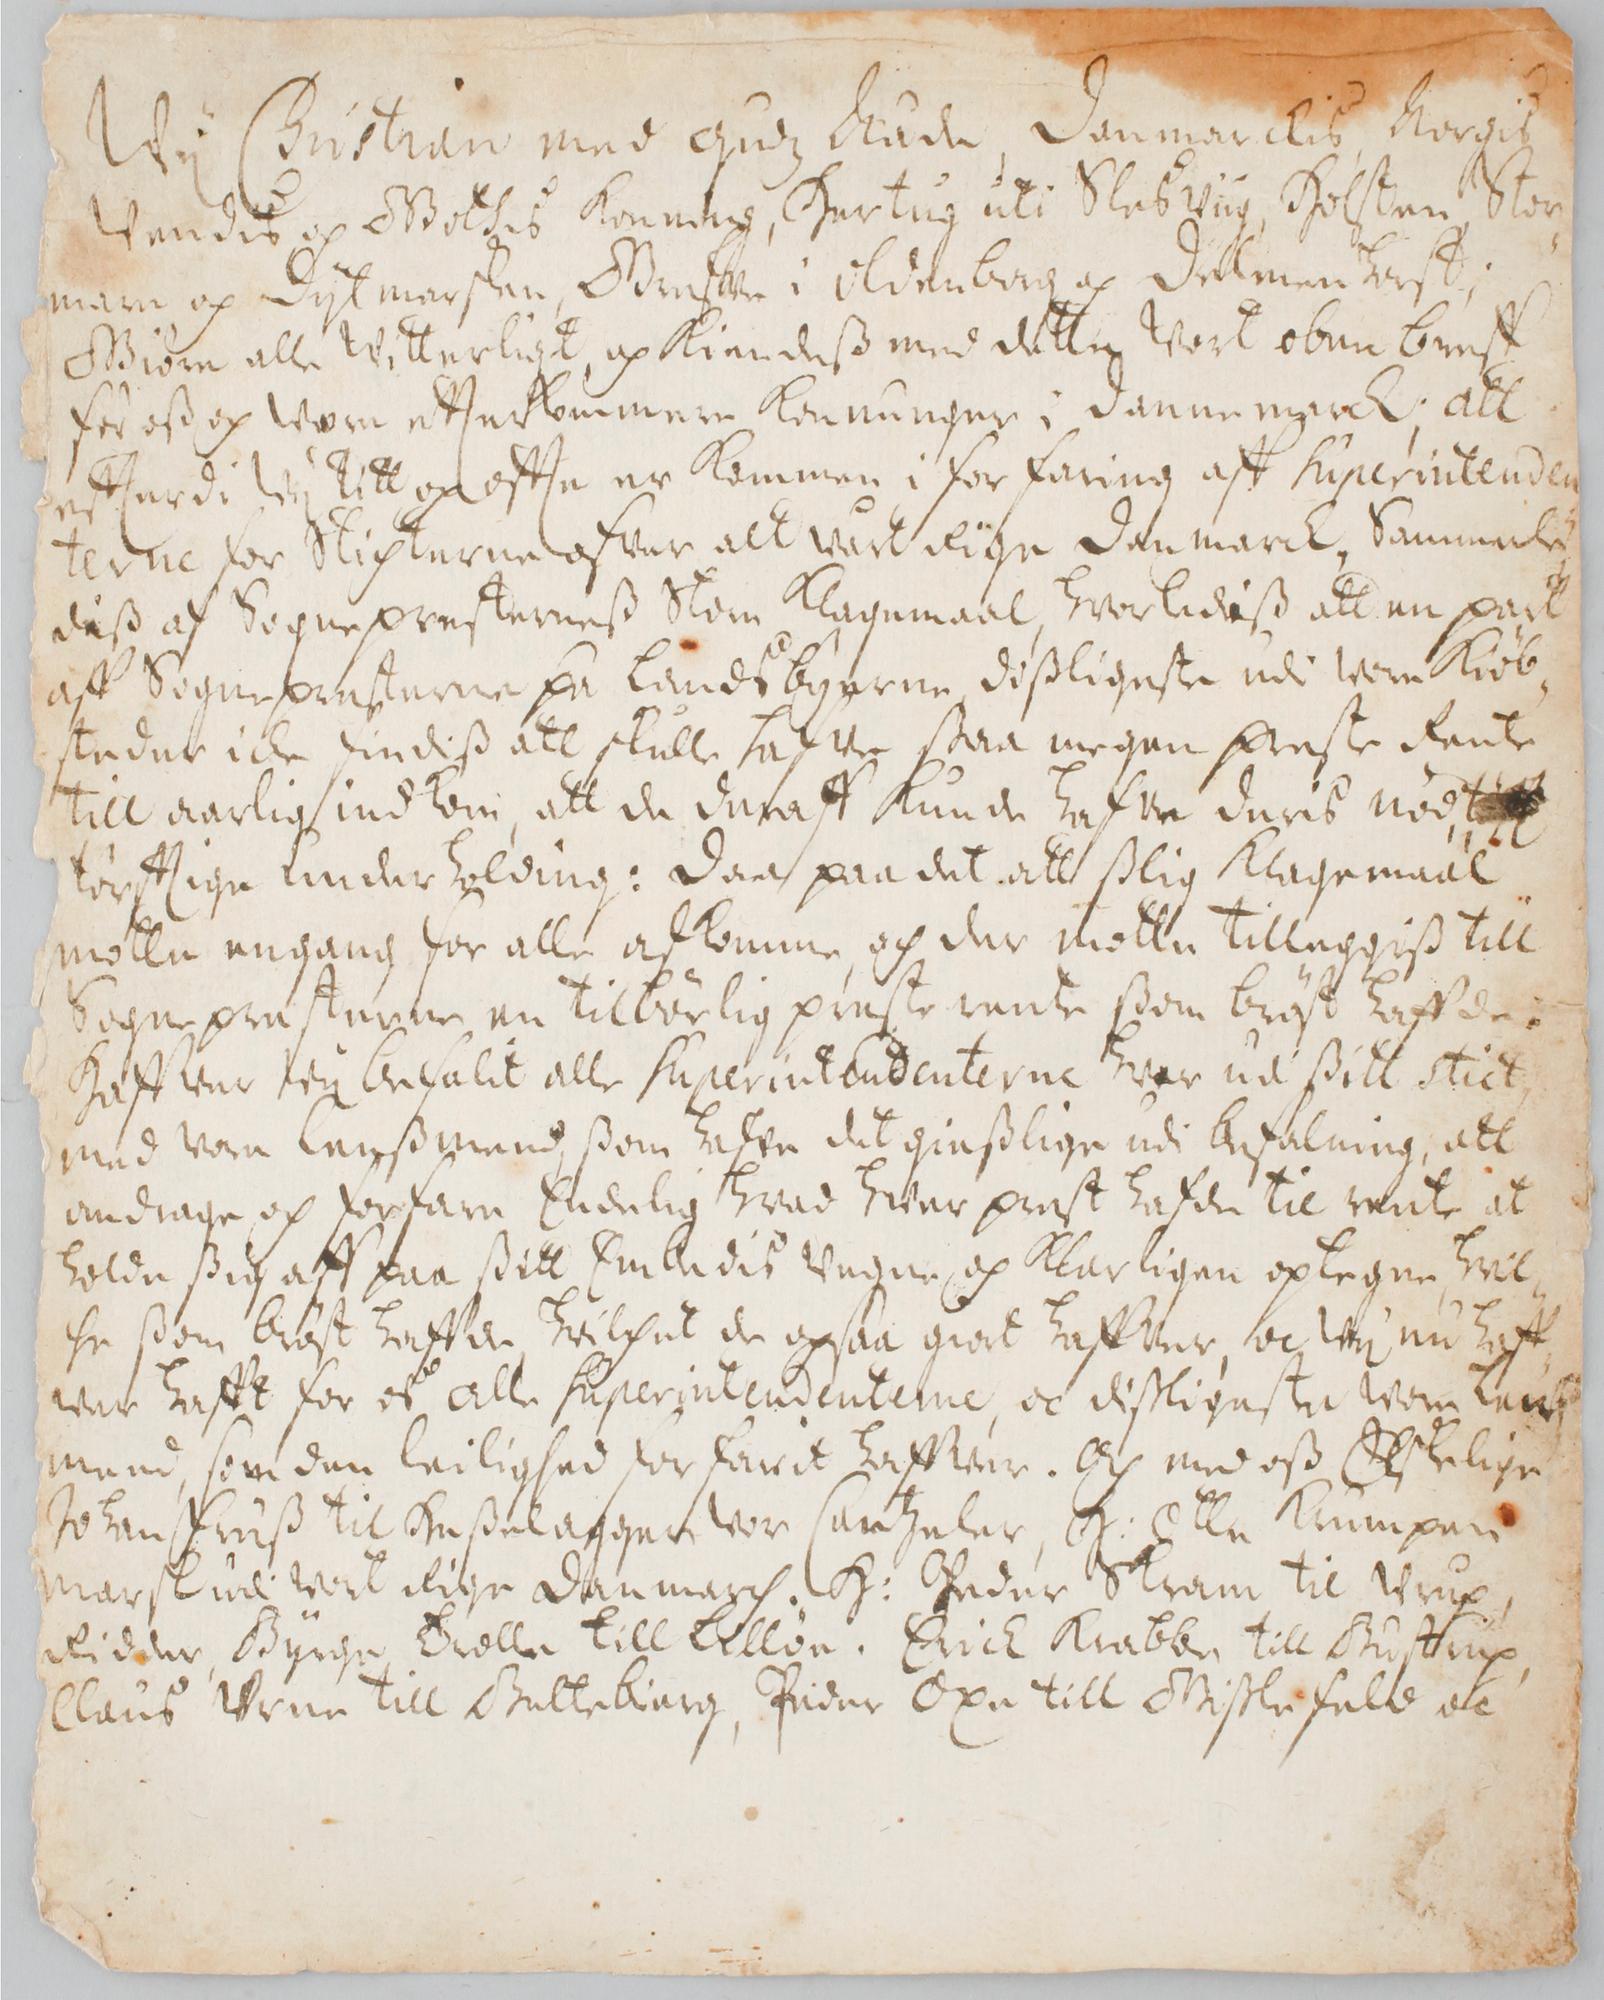 Wÿ Christian med gudz Naade, Danmarckis, Norgis
Vendis og Gothis Konning, Hertug uti Slesvüg, Holsten, Stor-
marn og Dytmarsken, Grefve i Oldenborg og Delmenhorst;
Giöre alle Vitterligt, og Kiendeß med dette Vort oben breff
for oß og Vore efterkommere Konnunger i Dannemarck, att
efterdi Wÿ titt og offte er Kommen i forfaring aff Superintenden
terne for Stigterne ofver alt vort Rige Danmarck, Sammele-
diß af Sognepresterneß Store Klagemaal, hvorlediß att en part
aff Sognepresterne pa Landsbyerne, dißligeste udi vore Kiöb-
steder icke findiß att skulle hafve ssaa megen preste Rente
till aarlig indkom, att de deraff kunde hafve deris nöd-
törfftige underholding: Daa paa det att ßlig Klagemaal
motte engang for alle afkomme, og der motte tilleggiß till
Sognepresterne en tilbörlig preste rente ßom bröst haffde:
Haffver wÿ befalit alle Superintendenterne hver udi ßitt stict,
med vore lenßmend, ßom hafve det gießtlige udi befalning, att
andrage og forfare Endelig hvad hver prest hafde til rente at
holde ßig aff paa ßitt Embedis Vegne, og Klarligen optegne, hvil-
che ßom bröst haffde, hvilchet de ogsaa giort haffver, oc Wÿ nu haff-
ver hafft for os alle Superintendenterne, oc dißligeste vore lenß
mend, som den leilighed forfarit haffver. Og med oß Elskelige
Johan Friiß til Heßelagger vor Cantzeler, H: Otte Krumpen
Marsk udi vort Rige Danmarch. H: Peder Skram til Vrup,
Ridder, Byrge Trolle till Lilløe. Erick Krabbe till Bustrup,
Claus Vrne till Beltebierg, Peder Oxe till Gißlefeld oc